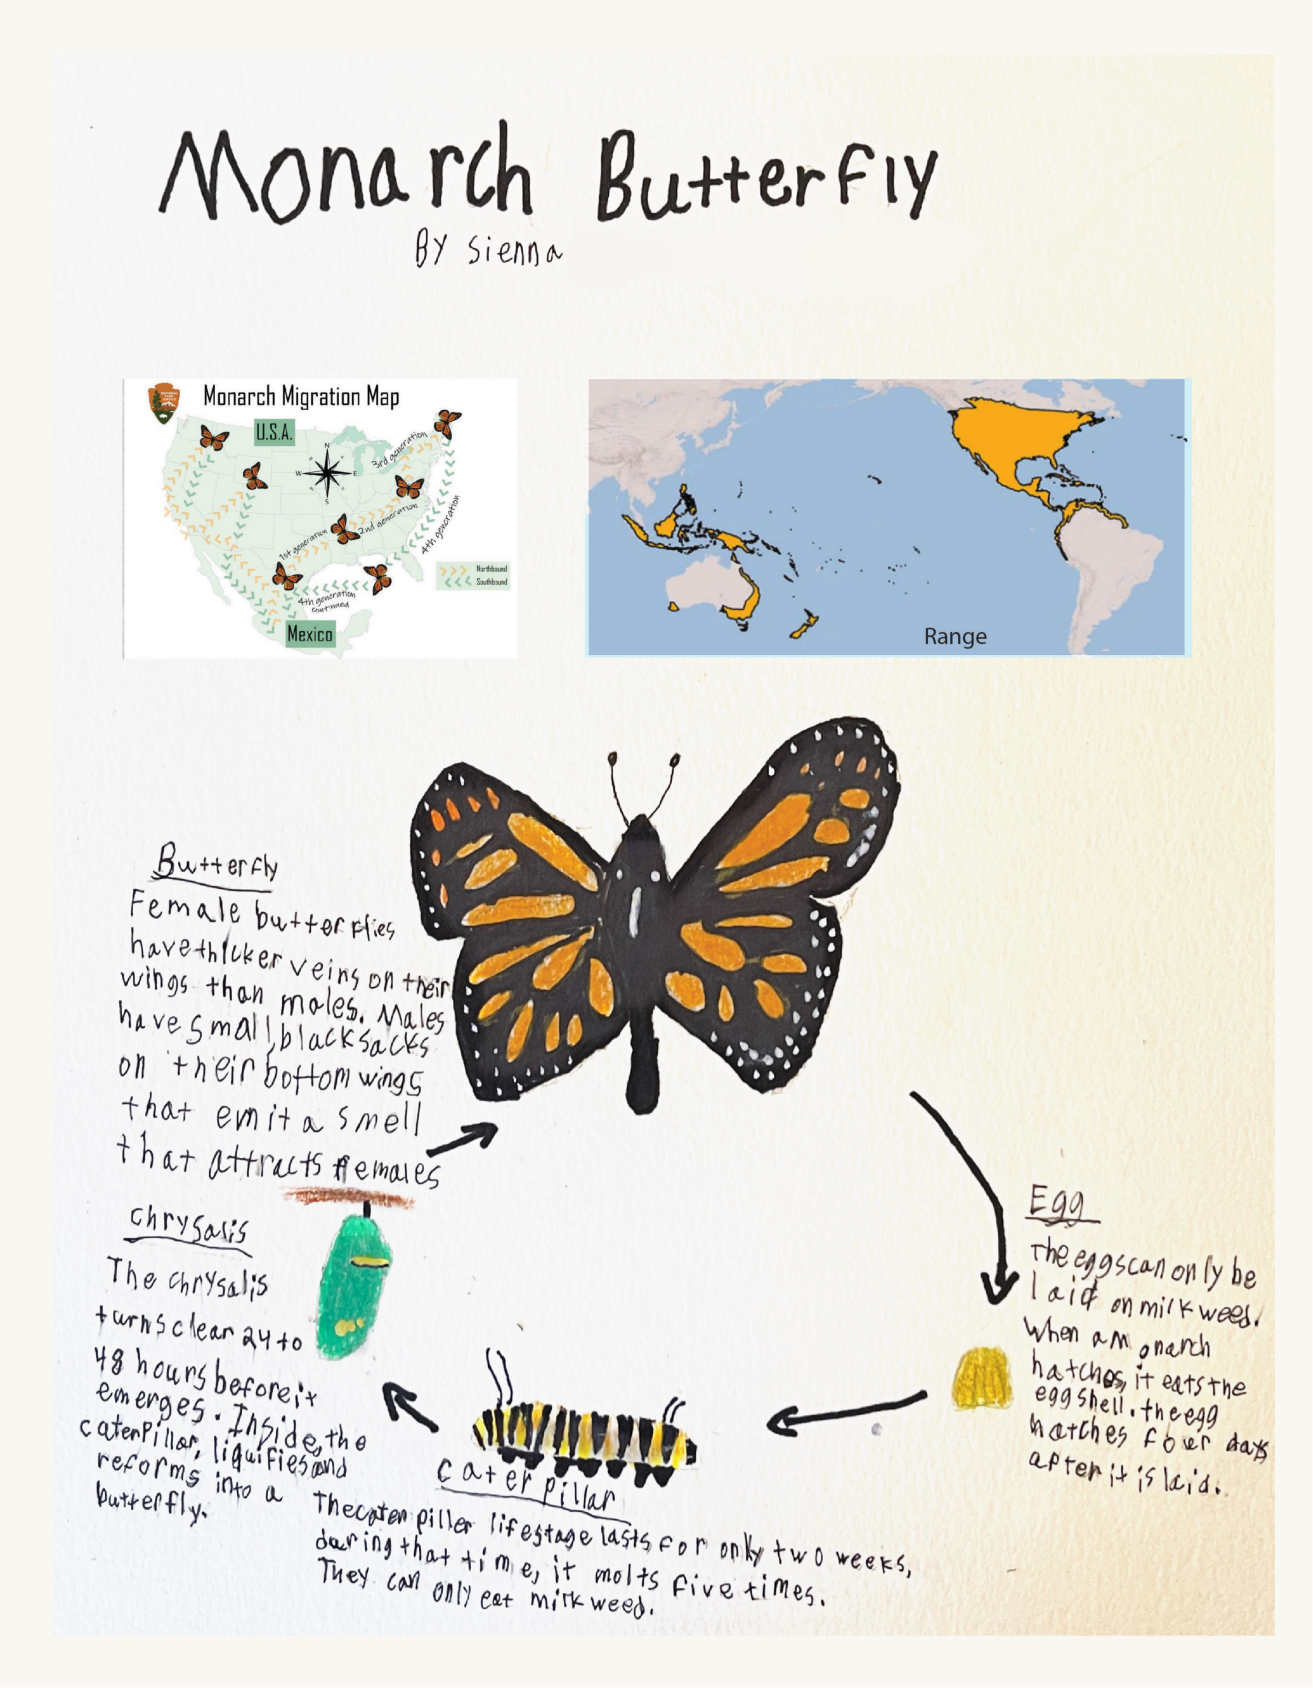 Monarch Butterfly
By Sienna
Monarch Migration Map
U.S.A.
N
W
E
S
3rd generation
2nd generation
1st generation
4th generation
4th generation
continued
Northbound
Southbound
Mexico
Range
Butterfly
Female butterflies
have thicker veins on their
wings than males. Males
have small, black sacks
on their bottom wings
that emit a smell
that attracts females
Chrysalis
The chrysalis
turns clear 24 to
48 hours before it
emerges. Inside, the
caterpillar, liquifies and
reforms into a
butterfly.
Egg
The eggs can only be
laid on milkweed.
When a monarch
hatches, it eats the
egg shell. the egg
hatches four days
after it is laid.
Caterpillar
The caterpiller lifestage lasts for only two weeks,
during that time, it molts five times.
They can only eat milkweed.